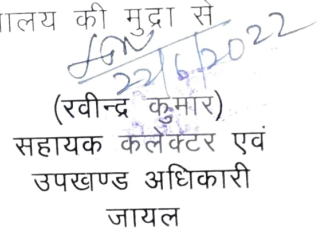 ालय की मुद्रा से
22/6/2022
(रवीन्द्र कुमार)
सहायक कलेक्टर एवं
उपखण्ड अधिकारी
जायल